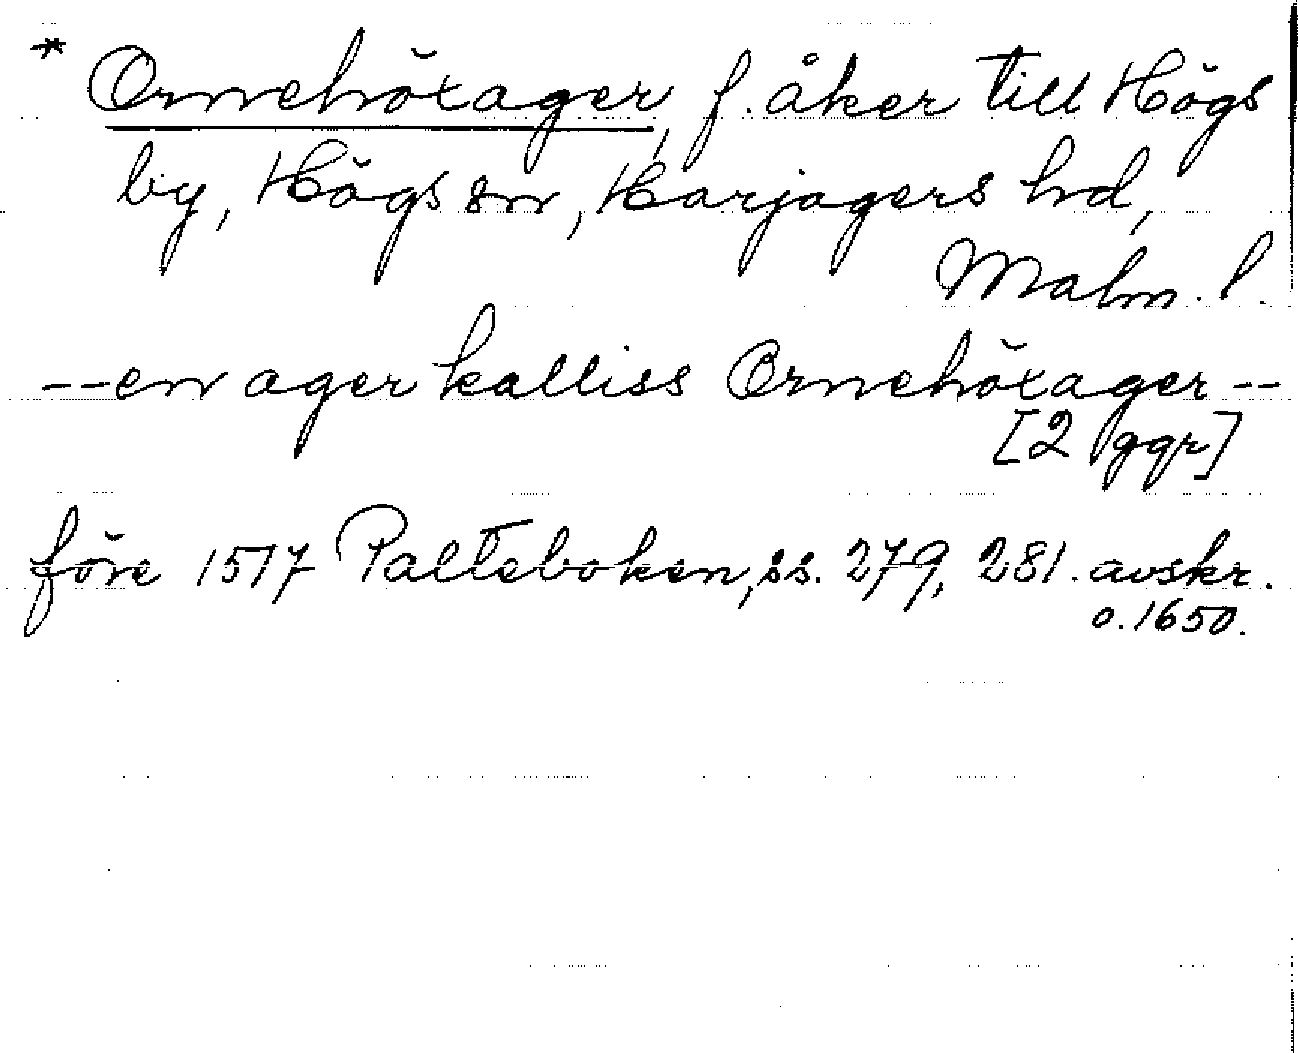 * Ornehöxager, f. åker till Högs
by, Högs sn, Harjagers hd,
Malm. l.
--en ager kalliss Ornehöxager--
[2 ggr]
före 1517 Palteboken, ss. 279, 281. avskr.
o. 1650.